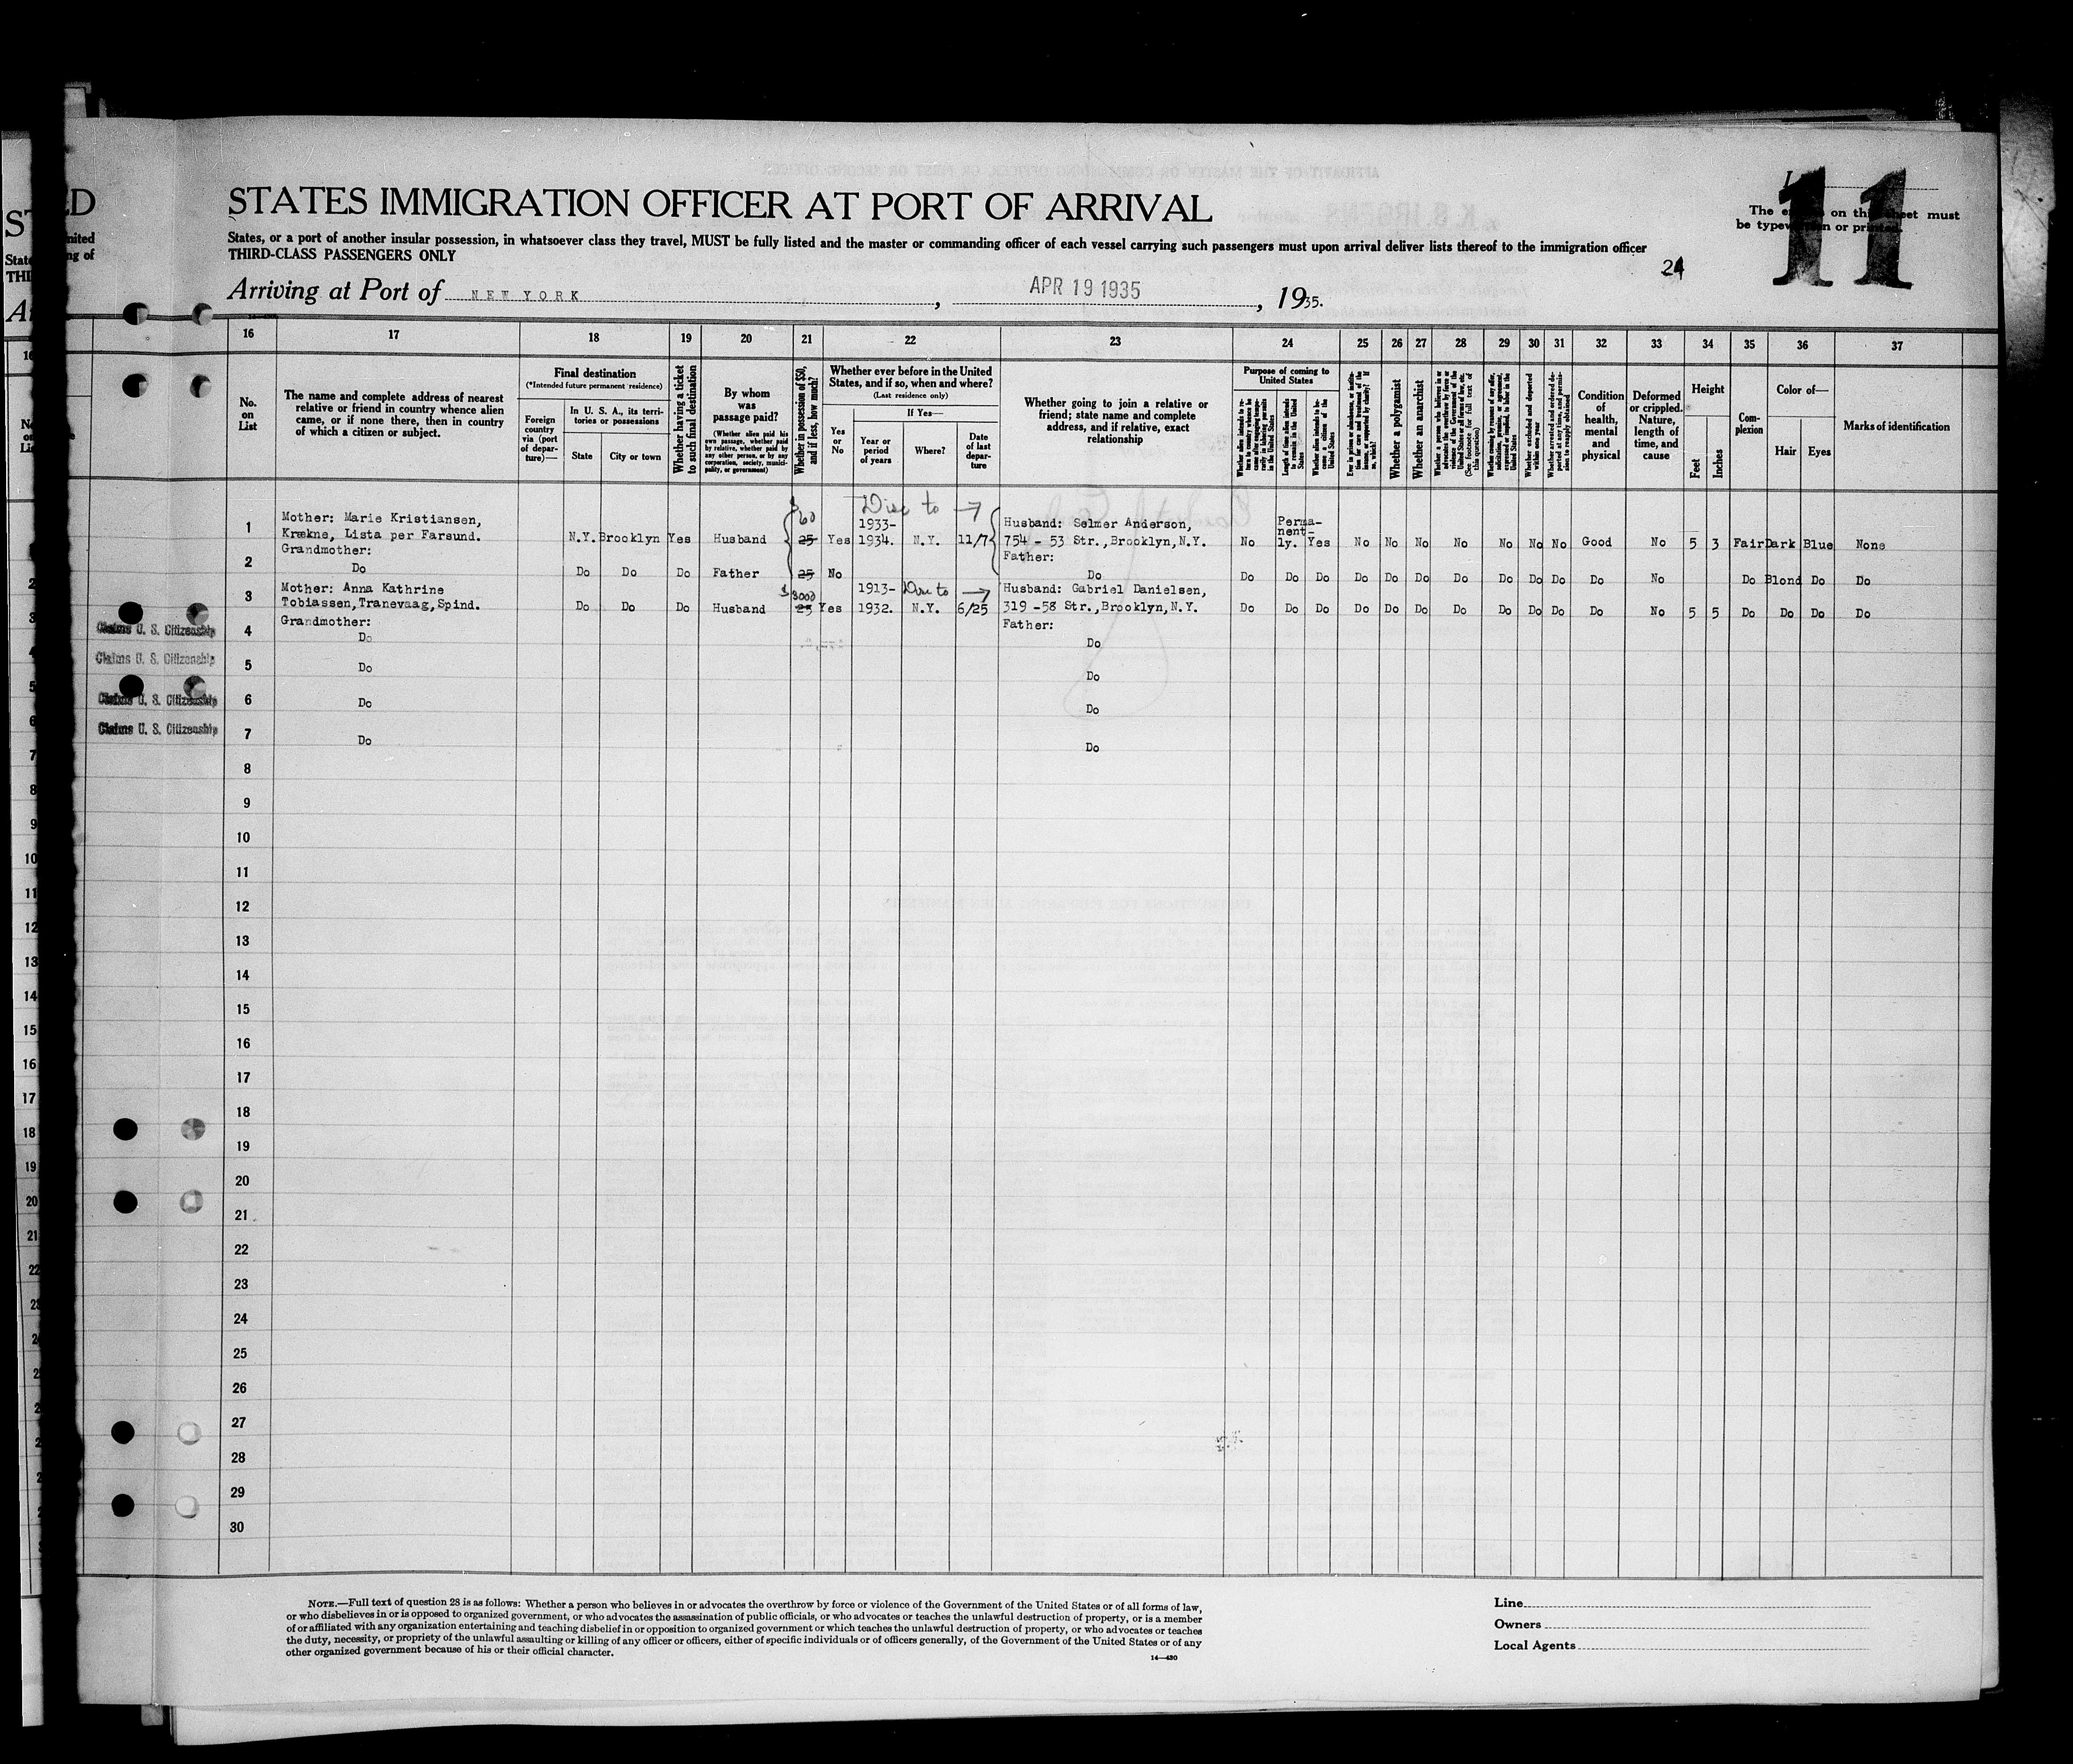 STATES IMMIGRATION OFFICER AT PORT OF ARRIVAL
States, or a port of another insular possession, in whatsoever class they travel, MUST be fully listed and the master or commanding officer of each vessel carrying such passengers must upon arrival deliver lists thereof to the immigration officer
THIRD-CLASS PASSENGERS ONLY
The on this sheet must
be typewritten or printed.
11
24
Arriving at Port of NEW YORK, APR 19 1935, 1935.
16 17 18 19 20 21 22 23 24 25 26 27 28 29 30 31 32 33 34 35 36 37
No. on List
The name and complete address of nearest relative or friend in country whence alien came, or if none there, then in country of which a citizen or subject.
Final destination
(*Intended future permanent residence)
Foreign country via (port of departure)—
In U. S. A., its territories or possessions
State
City or town
Whether having a ticket to such final destination
By whom was passage paid?
(Whether alien paid his own passage, whether paid by relative, whether paid by any other person, or by any corporation, society, municipality, or government)
Whether in possession of $50, and if less, how much?
Whether ever before in the United States, and if so, when and where?
(Last residence only)
Yes or No
If Yes—
Year or period of years
Where?
Date of last departure
Whether going to join a relative or friend; state name and complete address, and if relative, exact relationship
Purpose of coming to United States
Length of time alien intends to remain in the United States
Whether alien intends to become a citizen of the United States
Whether a polygamist
Whether an anarchist
Condition of health, mental and physical
Deformed or crippled. Nature, length of time, and cause
Height
Feet
Inches
Complexion
Color of—
Hair
Eyes
Marks of identification
to →
1 Mother: Marie Kristiansen, Krækne, Lista per Farsund. N.Y. Brooklyn Yes Husband $60 25 Yes 1933-1934. N.Y. 11/7 Husband: Selmer Anderson, 754 - 53 Str., Brooklyn, N.Y. No Permanently. Yes No No No No No No No Good No 5 3 Fair Dark Blue None
2 Grandmother: Do Do Do Do Father 25 No Father: Do Do Do Do Do Do Do Do Do Do Do Do No Do Blond Do Do
3 Mother: Anna Kathrine Tobiassen, Tranevaag, Spind. Do Do Do Husband $3000 25 Yes 1913-1932. N.Y. to → 6/25 Husband: Gabriel Danielsen, 319 -58 Str., Brooklyn, N.Y. Do Do Do Do Do Do Do Do Do Do Do No 5 5 Do Do Do Do
Claims U. S. Citizenship 4 Grandmother: Do Father: Do
Claims U. S. Citizenship 5 Do Do
Claims U. S. Citizenship 6 Do Do
Claims U. S. Citizenship 7 Do Do
8
9
10
11
12
13
14
15
16
17
18
19
20
21
22
23
24
25
26
27
28
29
30
NOTE.—Full text of question 28 is as follows: Whether a person who believes in or advocates the overthrow by force or violence of the Government of the United States or of all forms of law,
or who disbelieves in or is opposed to organized government, or who advocates the assassination of public officials, or who advocates or teaches the unlawful destruction of property, or is a member
of or affiliated with any organization entertaining and teaching disbelief in or opposition to organized government or which teaches the unlawful destruction of property, or who advocates or teaches
the duty, necessity, or propriety of the unlawful assaulting or killing of any officer or officers, either of specific individuals or of officers generally, of the Government of the United States or of any
other organized government because of his or their official character.
14—430
Line
Owners
Local Agents